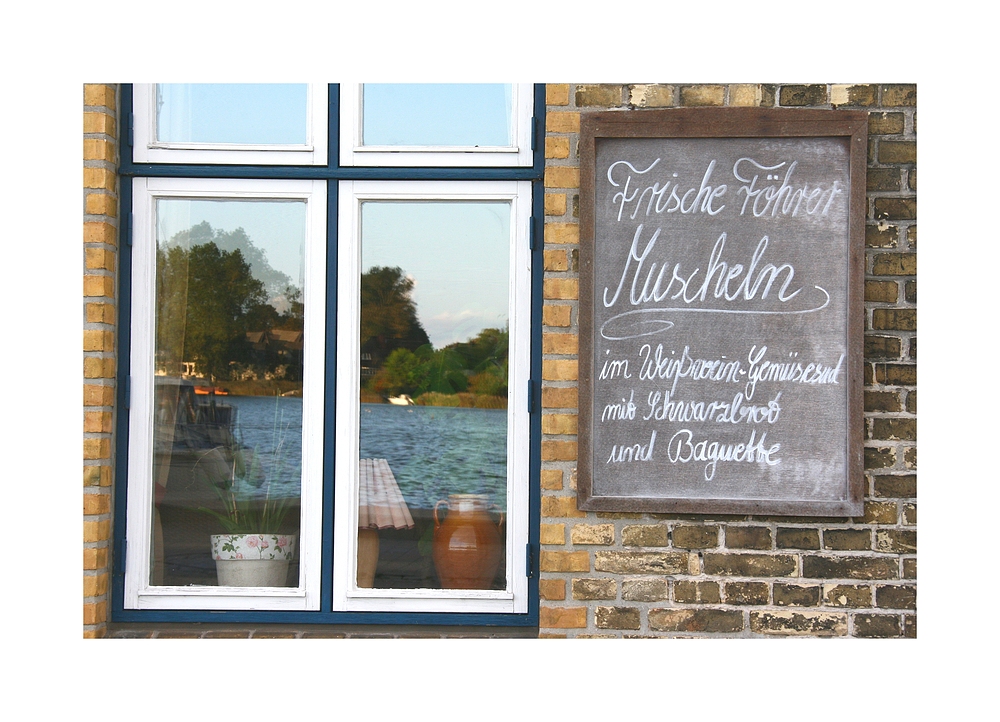 Frische Föhrer
Muscheln
im Weißwein-Gemüsesud
mit Schwarzbrot
und Baguette